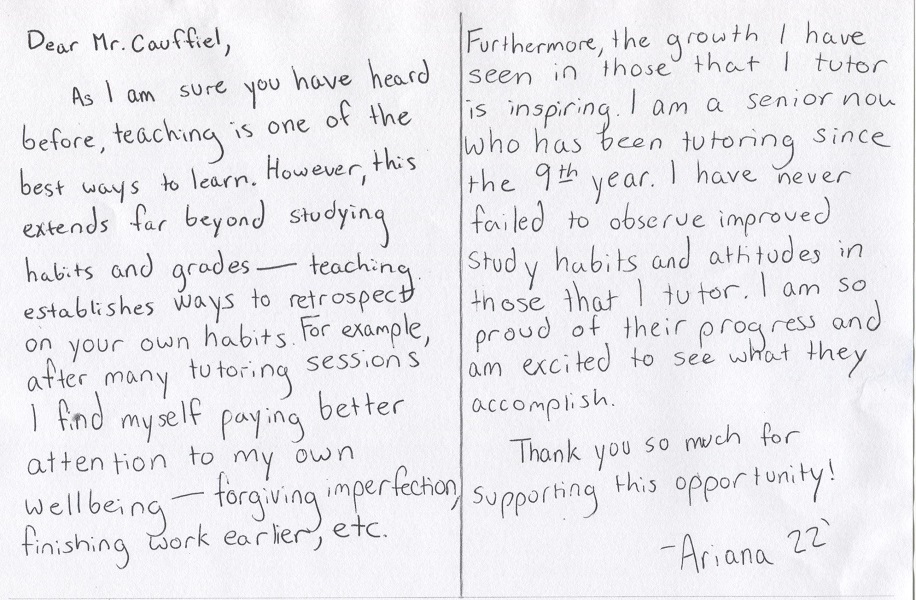 Dear Mr. Cauffiel,
As I am sure you have heard
before, teaching is one of the
best ways to learn. However, this
extends far beyond studying
habits and grades — teaching
establishes ways to retrospect
on your own habits. For example,
after many tutoring sessions
I find myself paying better
attention to my own
wellbeing — forgiving imperfection,
finishing work earlier, etc.
Furthermore, the growth I have
seen in those that I tutor
is inspiring. I am a senior now
who has been tutoring since
the 9th year. I have never
failed to observe improved
study habits and attitudes in
those that I tutor. I am so
proud of their progress and
am excited to see what they
accomplish.
Thank you so much for
supporting this opportunity!
-Ariana 22`